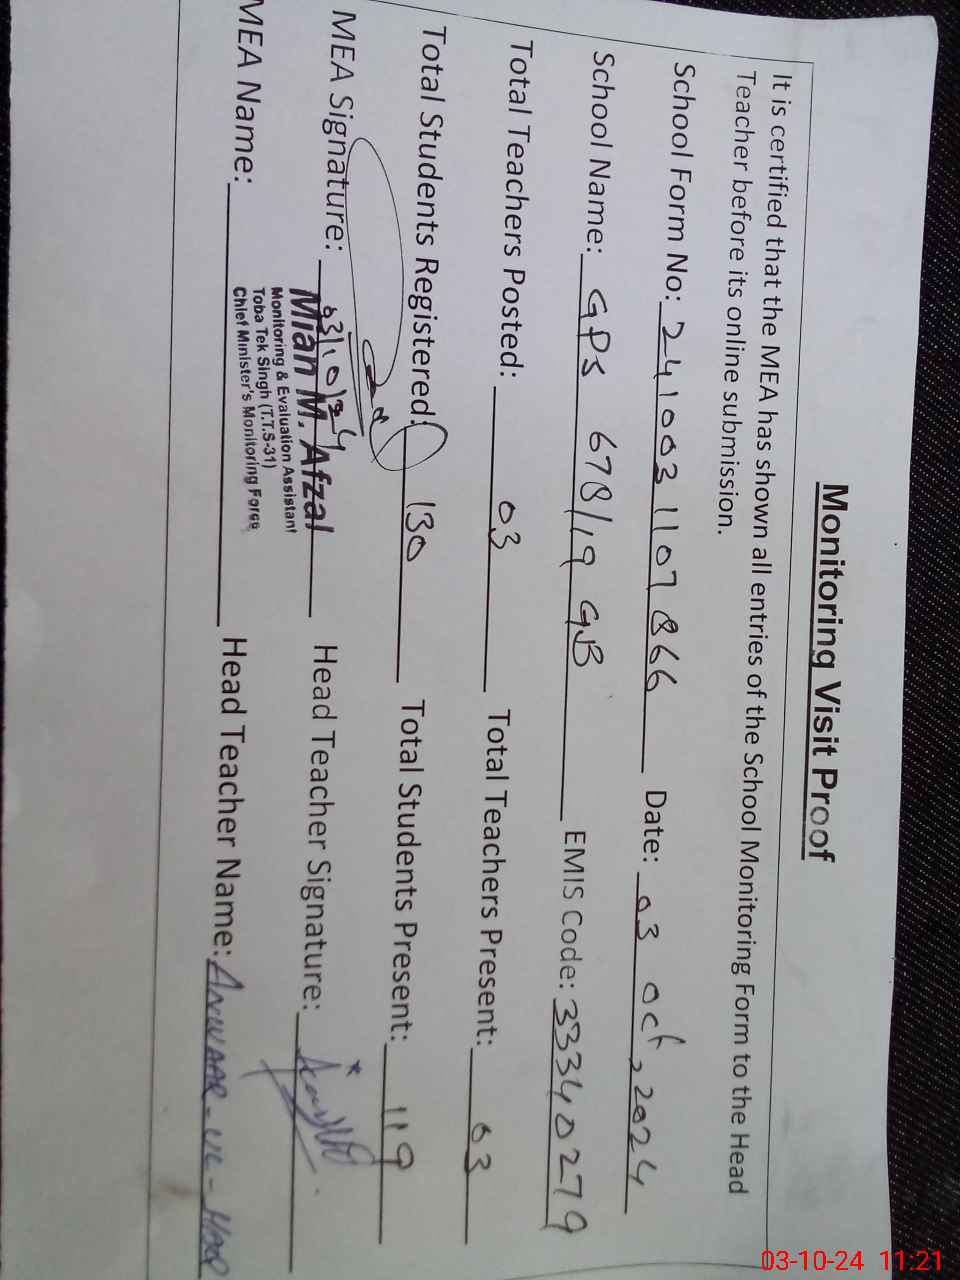 Monitoring Visit Proof
It is certified that the MEA has shown all entries of the School Monitoring Form to the Head
Teacher before its online submission.
School Form No: 241003 1107866 Date: 03 Oct, 2024
School Name: GPS 678/19 GB EMIS Code: 33340279
Total Teachers Posted: 03 Total Teachers Present: 03
Total Students Registered: 130 Total Students Present: 119
MEA Signature: 03/10/24 Head Teacher Signature:
Mian M. Afzal
Monitoring & Evaluation Assistant
Toba Tek Singh (T.T.S-31)
Chief Minister's Monitoring Force
MEA Name: Head Teacher Name: ANWAAR-UL-HAQ
03-10-24 11:21